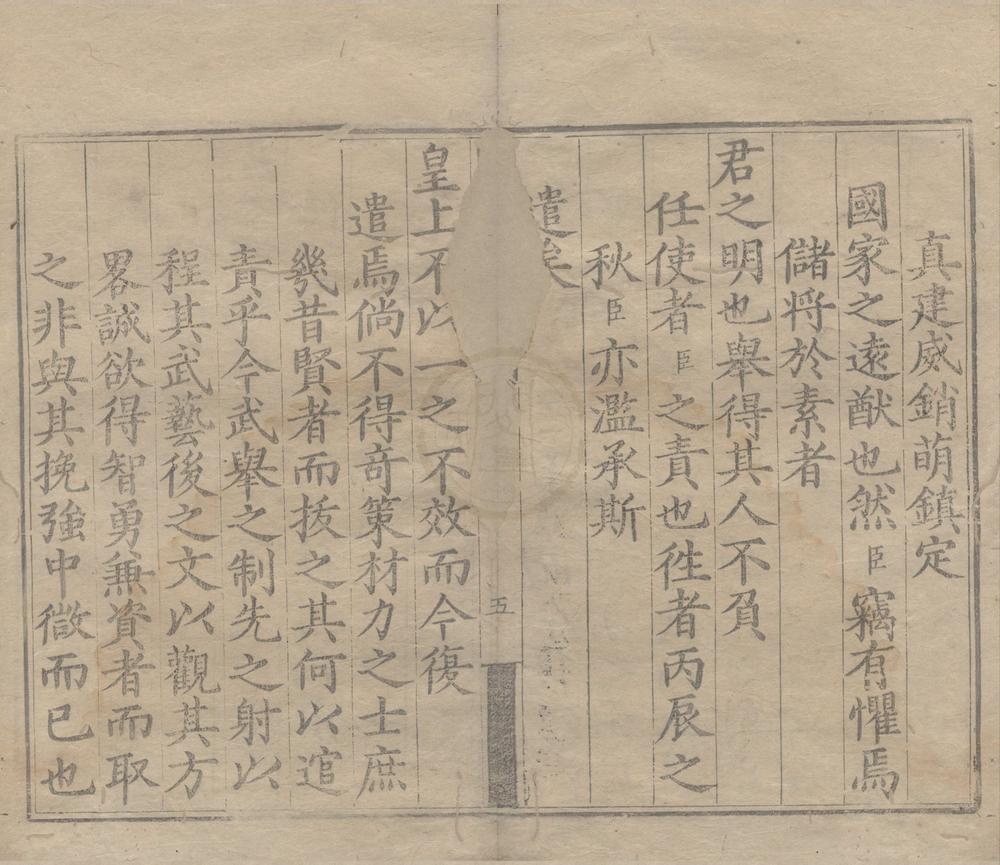 真建威銷萌鎮定
國家之遠猷也然臣竊有懼焉
儲將於素者
君之明也舉得其人不負
任使者臣之責也徃者丙辰之
秋臣亦濫承斯
遣矣
五
皇上不以一之不效而今復
遣焉倘不得奇策材力之士庶
幾昔賢者而拔之其何以逭
責乎今武舉之制先之射以
程其武藝後之文以觀其方
畧誠欲得智勇兼資者而取
之非與其挽強中徵而已也